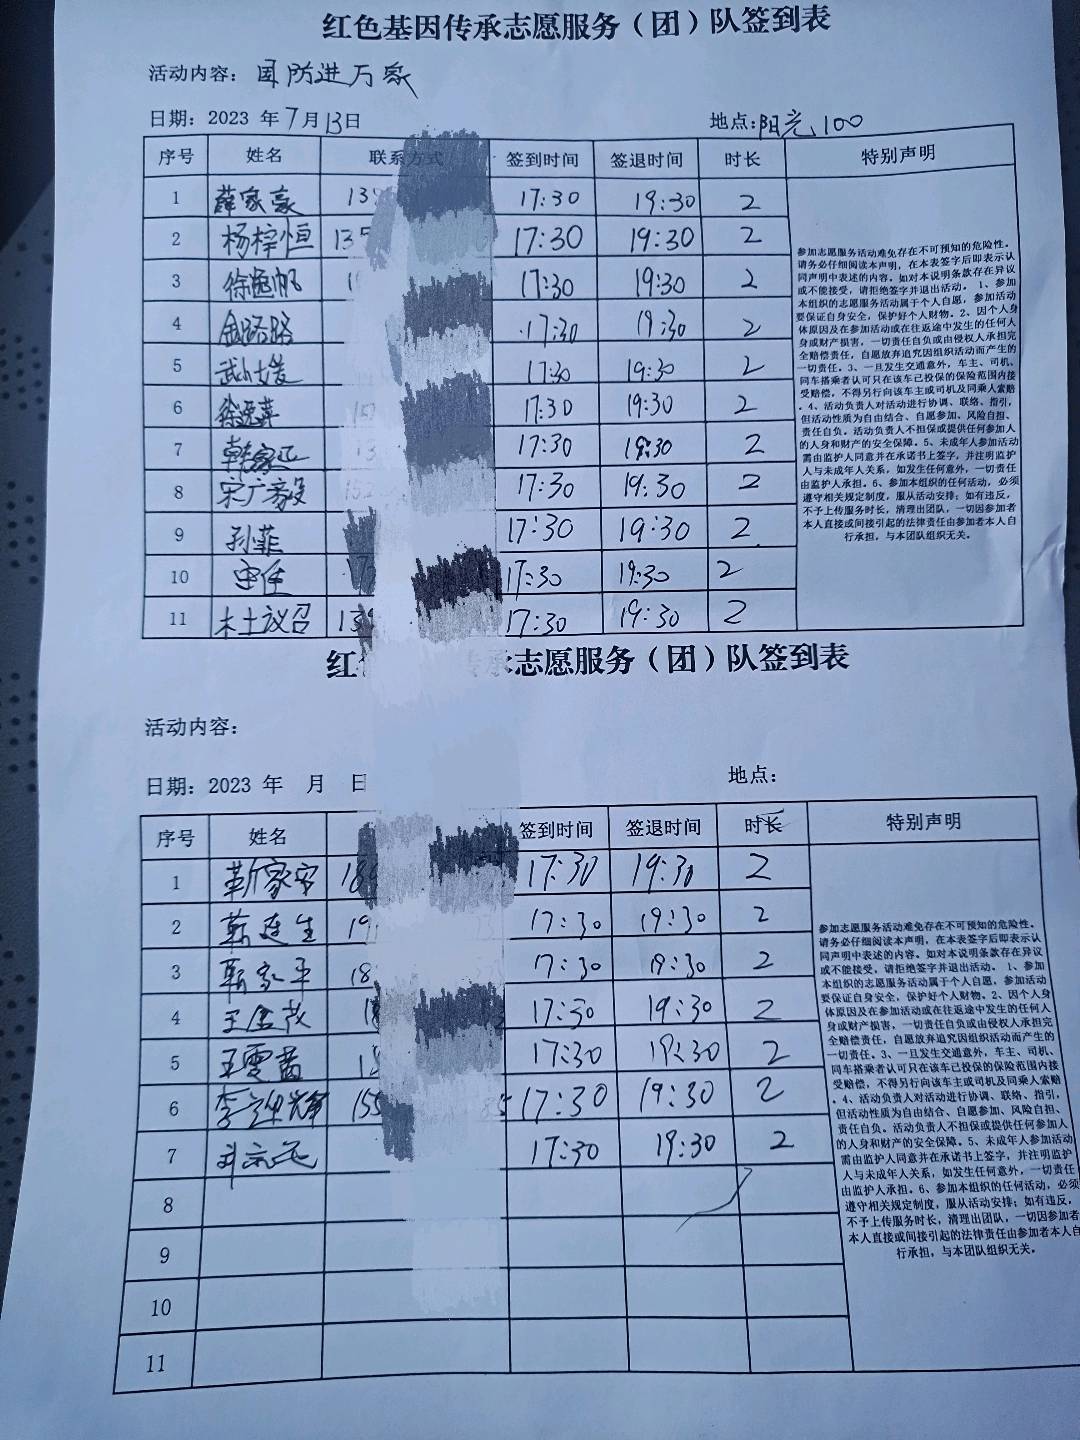 红色基因传承志愿服务（团）队签到表
活动内容：国防进万家
日期：2023 年 7 月 13 日 地点：阳光100
序号 姓名 联系方式 签到时间 签退时间 时长 特别声明
1 薛家豪 17:30 19:30 2
2 杨梓恒 135 17:30 19:30 2
3 17:30 19:30 2
4 17:30 19:30 2
5 17:30 19:30 2
6 17:30 19:30 2
7 韩家正 17:30 19:30 2
8 宋广毅 17:30 19:30 2
9 孙菲 17:30 19:30 2
10 17:30 19:30 2
11 17:30 19:30 2
参加志愿服务活动难免存在不可预知的危险性。
请务必仔细阅读本声明，在本表签字后即表示认
同声明中表述的内容。如对本说明条款存在异议
或不能接受，请拒绝签字并退出活动。 1、参加
本组织的志愿服务活动属于个人自愿，参加活动
要保证自身安全，保护好个人财物。2、因个人身
体原因及在参加活动或在往返途中发生的任何人
身或财产损害，一切责任自负或由侵权人承担完
全赔偿责任，自愿放弃追究因组织活动而产生的
一切责任。3、一旦发生交通意外，车主、司机、
同车搭乘者认可只在该车已投保的保险范围内接
受赔偿，不得另行向该车主或司机及同乘人索赔
。4、活动负责人对活动进行协调、联络、指引，
但活动性质为自由结合、自愿参加、风险自担、
责任自负。活动负责人不担保或提供任何参加人
的人身和财产的安全保障。5、未成年人参加活动
需由监护人同意并在承诺书上签字，并注明监护
人与未成年人关系，如发生任何意外，一切责任
由监护人承担。6、参加本组织的任何活动，必须
遵守相关规定制度，服从活动安排；如有违反，
不予上传服务时长，清理出团队，一切因参加者
本人直接或间接引起的法律责任由参加者本人自
行承担，与本团队组织无关。
红 承志愿服务（团）队签到表
活动内容：
日期：2023 年 月 日 地点：
序号 姓名 签到时间 签退时间 时长 特别声明
1 靳家宁 17:30 19:30 2
2 靳连生 17:30 19:30 2
3 17:30 19:30 2
4 17:30 19:30 2
5 王雯茜 17:30 19:30 2
6 155 17:30 19:30 2
7 17:30 19:30 2
8
9
10
11
参加志愿服务活动难免存在不可预知的危险性。
请务必仔细阅读本声明，在本表签字后即表示认
同声明中表述的内容。如对本说明条款存在异议
或不能接受，请拒绝签字并退出活动。 1、参加
本组织的志愿服务活动属于个人自愿，参加活动
要保证自身安全，保护好个人财物。2、因个人身
体原因及在参加活动或在往返途中发生的任何人
身或财产损害，一切责任自负或由侵权人承担完
全赔偿责任，自愿放弃追究因组织活动而产生的
一切责任。3、一旦发生交通意外，车主、司机、
同车搭乘者认可只在该车已投保的保险范围内接
受赔偿，不得另行向该车主或司机及同乘人索赔
。4、活动负责人对活动进行协调、联络、指引，
但活动性质为自由结合、自愿参加、风险自担、
责任自负。活动负责人不担保或提供任何参加人
的人身和财产的安全保障。5、未成年人参加活动
需由监护人同意并在承诺书上签字，并注明监护
人与未成年人关系，如发生任何意外，一切责任
由监护人承担。6、参加本组织的任何活动，必须
遵守相关规定制度，服从活动安排；如有违反，
不予上传服务时长，清理出团队，一切因参加者
本人直接或间接引起的法律责任由参加者本人自
行承担，与本团队组织无关。